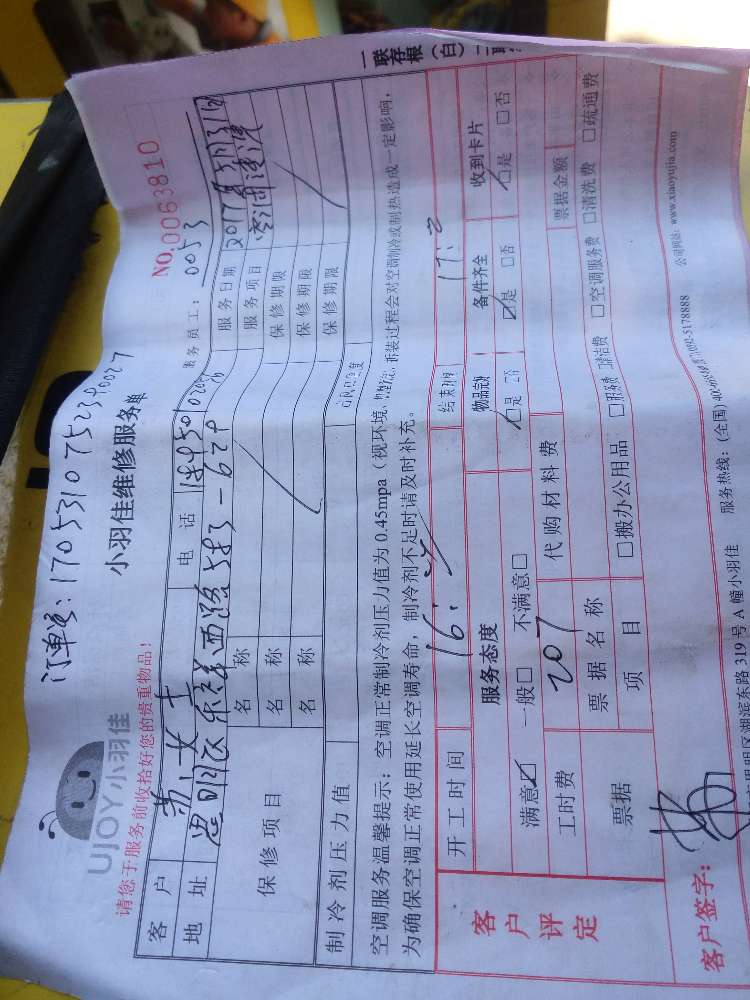 一联存根（白）二联
订单号：17053107523490027
UJOY小羽佳
小羽佳维修服务单
NO.0063810
请您于服务前收拾好您的贵重物品！
服务员工：0053
客户 苏女士 电话 服务日期 2017年5月31日
地址 思明区 西路 服务项目 空调清洗
保修项目 名称 保修期限
名称 保修期限
名称 保修期限
制冷剂压力值
空调服务温馨提示：空调正常制冷剂压力值为0.45mpa（视环境 拆装过程会对空调制冷或制热造成一定影响，
为确保空调正常使用延长空调寿命，制冷剂不足时请及时补充。
客户评定
开工时间 16: 结束时间 17:
服务态度 物品完好 备件齐全 收到卡片
满意☑ 一般□ 不满意□ ☑是 □否 ☑是 □否 ☑是 □否
工时费 207 代购材料费
票据 票据名称 票据金额
项目 □搬办公用品 □服务费 □清洁费 □空调服务费 □清洗费 □疏通费
客户签字：
思明区湖滨东路319号A幢小羽佳 服务热线：(全国) 0592-5178888 公司网站：www.xiaoyujia.com